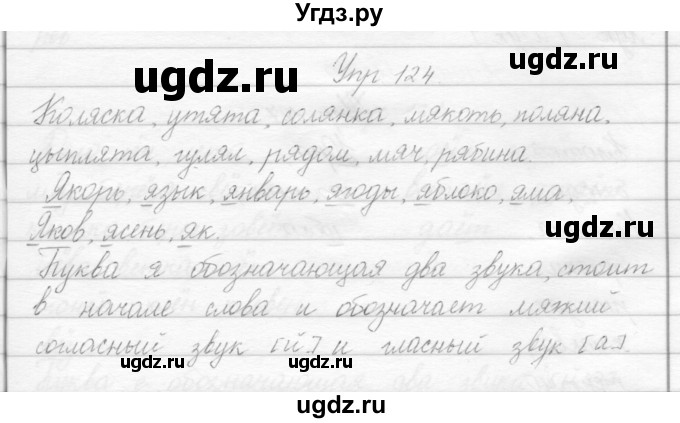 Угдз.ру
ugdz.ru ugdz.ru
Упр 124
Коляска, утята, солянка, мякоть, поляна,
ugdz.ru
цыплята, гулял, рядом, мяч, рябина.
Якорь, язык, январь, ягоды, яблоко, яма,
ugdz.ru ugdz.ru
Яков, ясень, як.
Буква я обозначающая два звука, стоит
ugdz.ru
в начале слова и обозначает мягкий
ugdz.ru ugdz.ru
согласный звук [й'] и гласный звук [а].
ugdz.ru
ugdz.ru